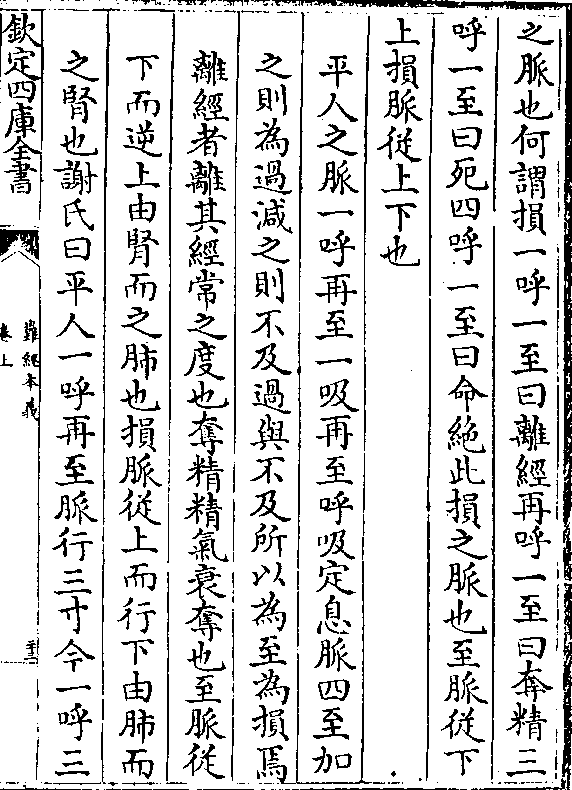 之脈也何謂損一呼一至曰離經再呼一至曰奪精三
呼一至曰死四呼一至曰命絶此損之脈也至脈從下
上損脈從上下也
平人之脈一呼再至一吸再至呼吸定息脈四至加
之則為過減之則不及過與不及所以為至為損焉
離經者離其經常之度也奪精精氣衰奪也至脈從
下而逆上由腎而之肺也損脈從上而行下由肺而
之腎也謝氏曰平人一呼再至脈行三寸今一呼三
欽定四庫全書
難經本義
卷上